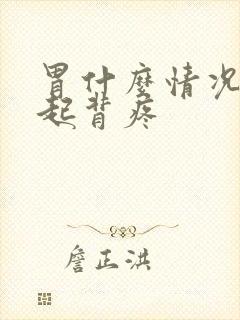 胃什麼情况
起背疼
詹正洪